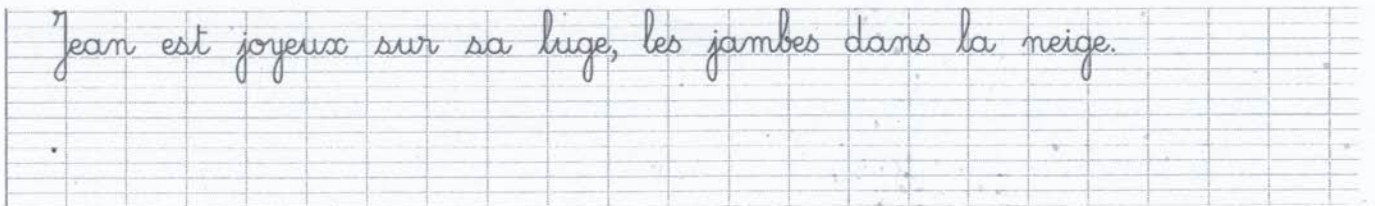 Jean est joyeux sur sa luge, les jambes dans la neige.